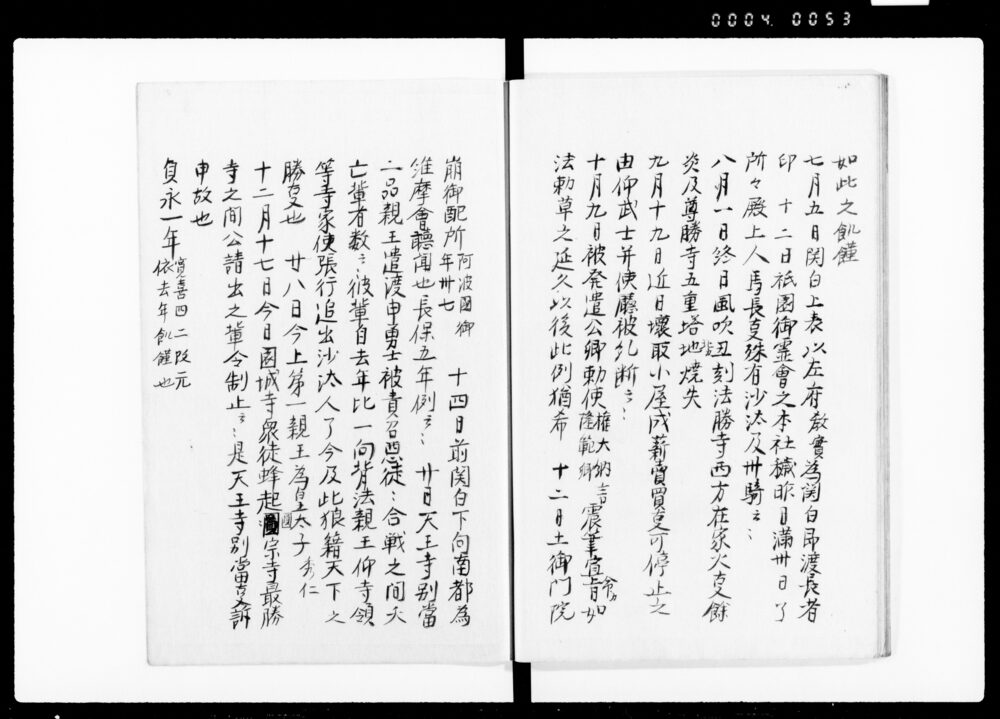 0004. 0053
如此之飢饉
七月五日関白上表以左府教實為関白即渡長者
印 十二日祇園御霊會之本社穢昨日満卅日了
所々殿上人馬長事殊有沙汰及卅騎云々
八月一日終日風吹丑刻法勝寺西方在家火事餘
炎及尊勝寺五重塔地焼失
九月十九日近日壊取小屋成薪賣買事可停止之
由仰武士并使廳被糺断云々
十月九日被発遣公卿勅使権大納言隆範卿震筆宣旨如
法勅草之延久以後此例猶希 十二日土御門院
崩御配所阿波國御年卅七 十四日前関白下向南都為
維摩會聴聞也長保五年例云々 廿日天王寺別當
二品親王遣渡申勇士被責召悪徒々合戦之間夭
亡輩者数云々彼輩自去年比一向背法親王仰寺領
等寺家使張行追出沙汰人了今及此狼籍天下之
勝事也 廿八日今上第一親王為皇太子秀仁
十二月十七日今日園城寺衆徒蜂起圓宗寺最勝
寺之間公請出之輩令制止云々是天王寺別當事訴
申故也
貞永一年寛喜四二改元依去年飢饉也